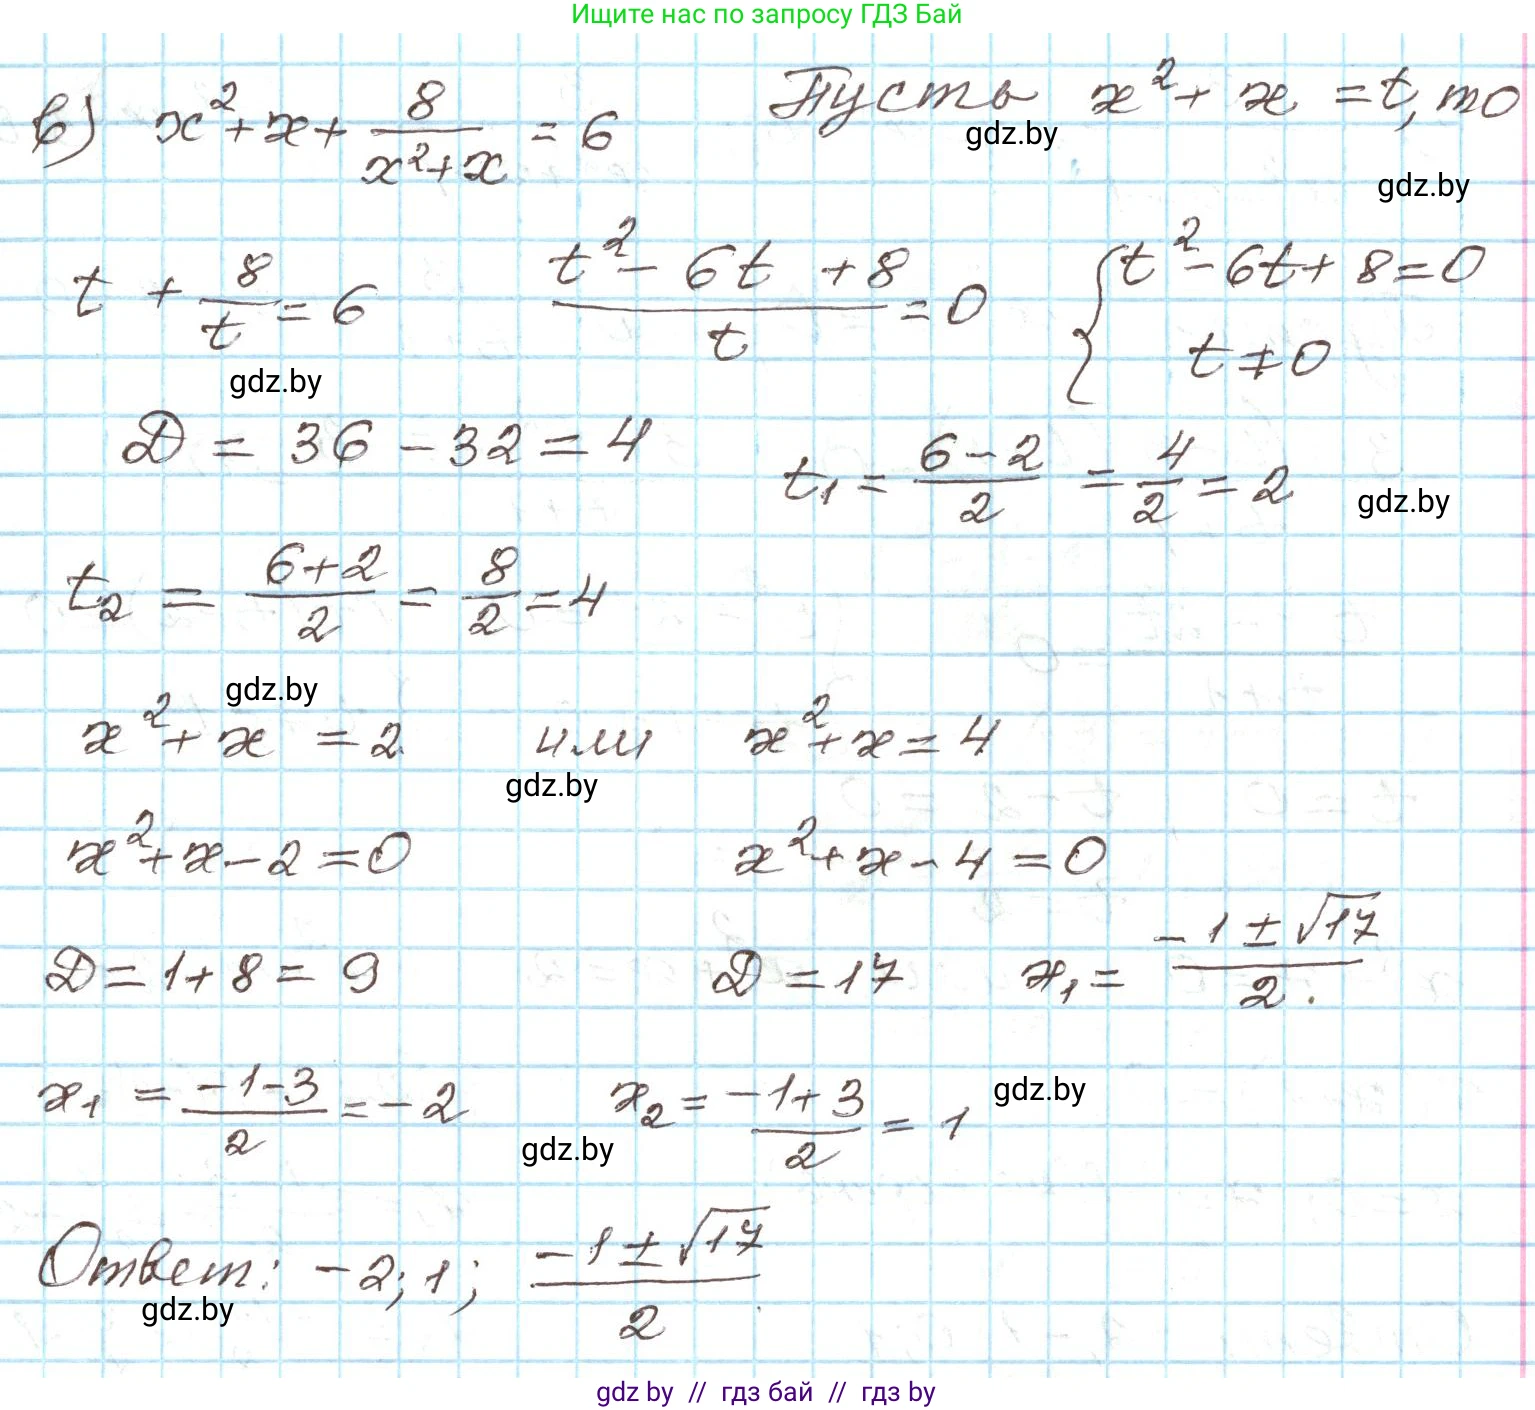 Ищите нас по запросу ГДЗ Бай
в) x²+x+ 8/(x²+x) = 6 Пусть x²+x = t, то
gdz.by
gdz.by
t + 8/t = 6 (t²-6t+8)/t = 0 { t²-6t+8=0
t≠0
gdz.by
D = 36-32=4 t₁ = (6-2)/2 = 4/2 = 2
gdz.by
t₂ = (6+2)/2 = 8/2 = 4
gdz.by
x²+x = 2 или x²+x=4
gdz.by
x²+x-2=0 x²+x-4=0
D=1+8=9 D=17 x₁= (-1±√17)/2.
x₁ = (-1-3)/2 = -2 x₂ = (-1+3)/2 = 1
gdz.by
gdz.by
Ответ: -2; 1; (-1±√17)/2
gdz.by
gdz by // гдз бай // гдз by